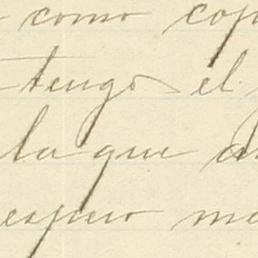 como cop
tengo el
la que a
espero me